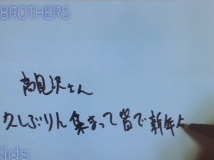 BROTHERS
高見沢さん
久しぶりに集まって皆で新年
kids